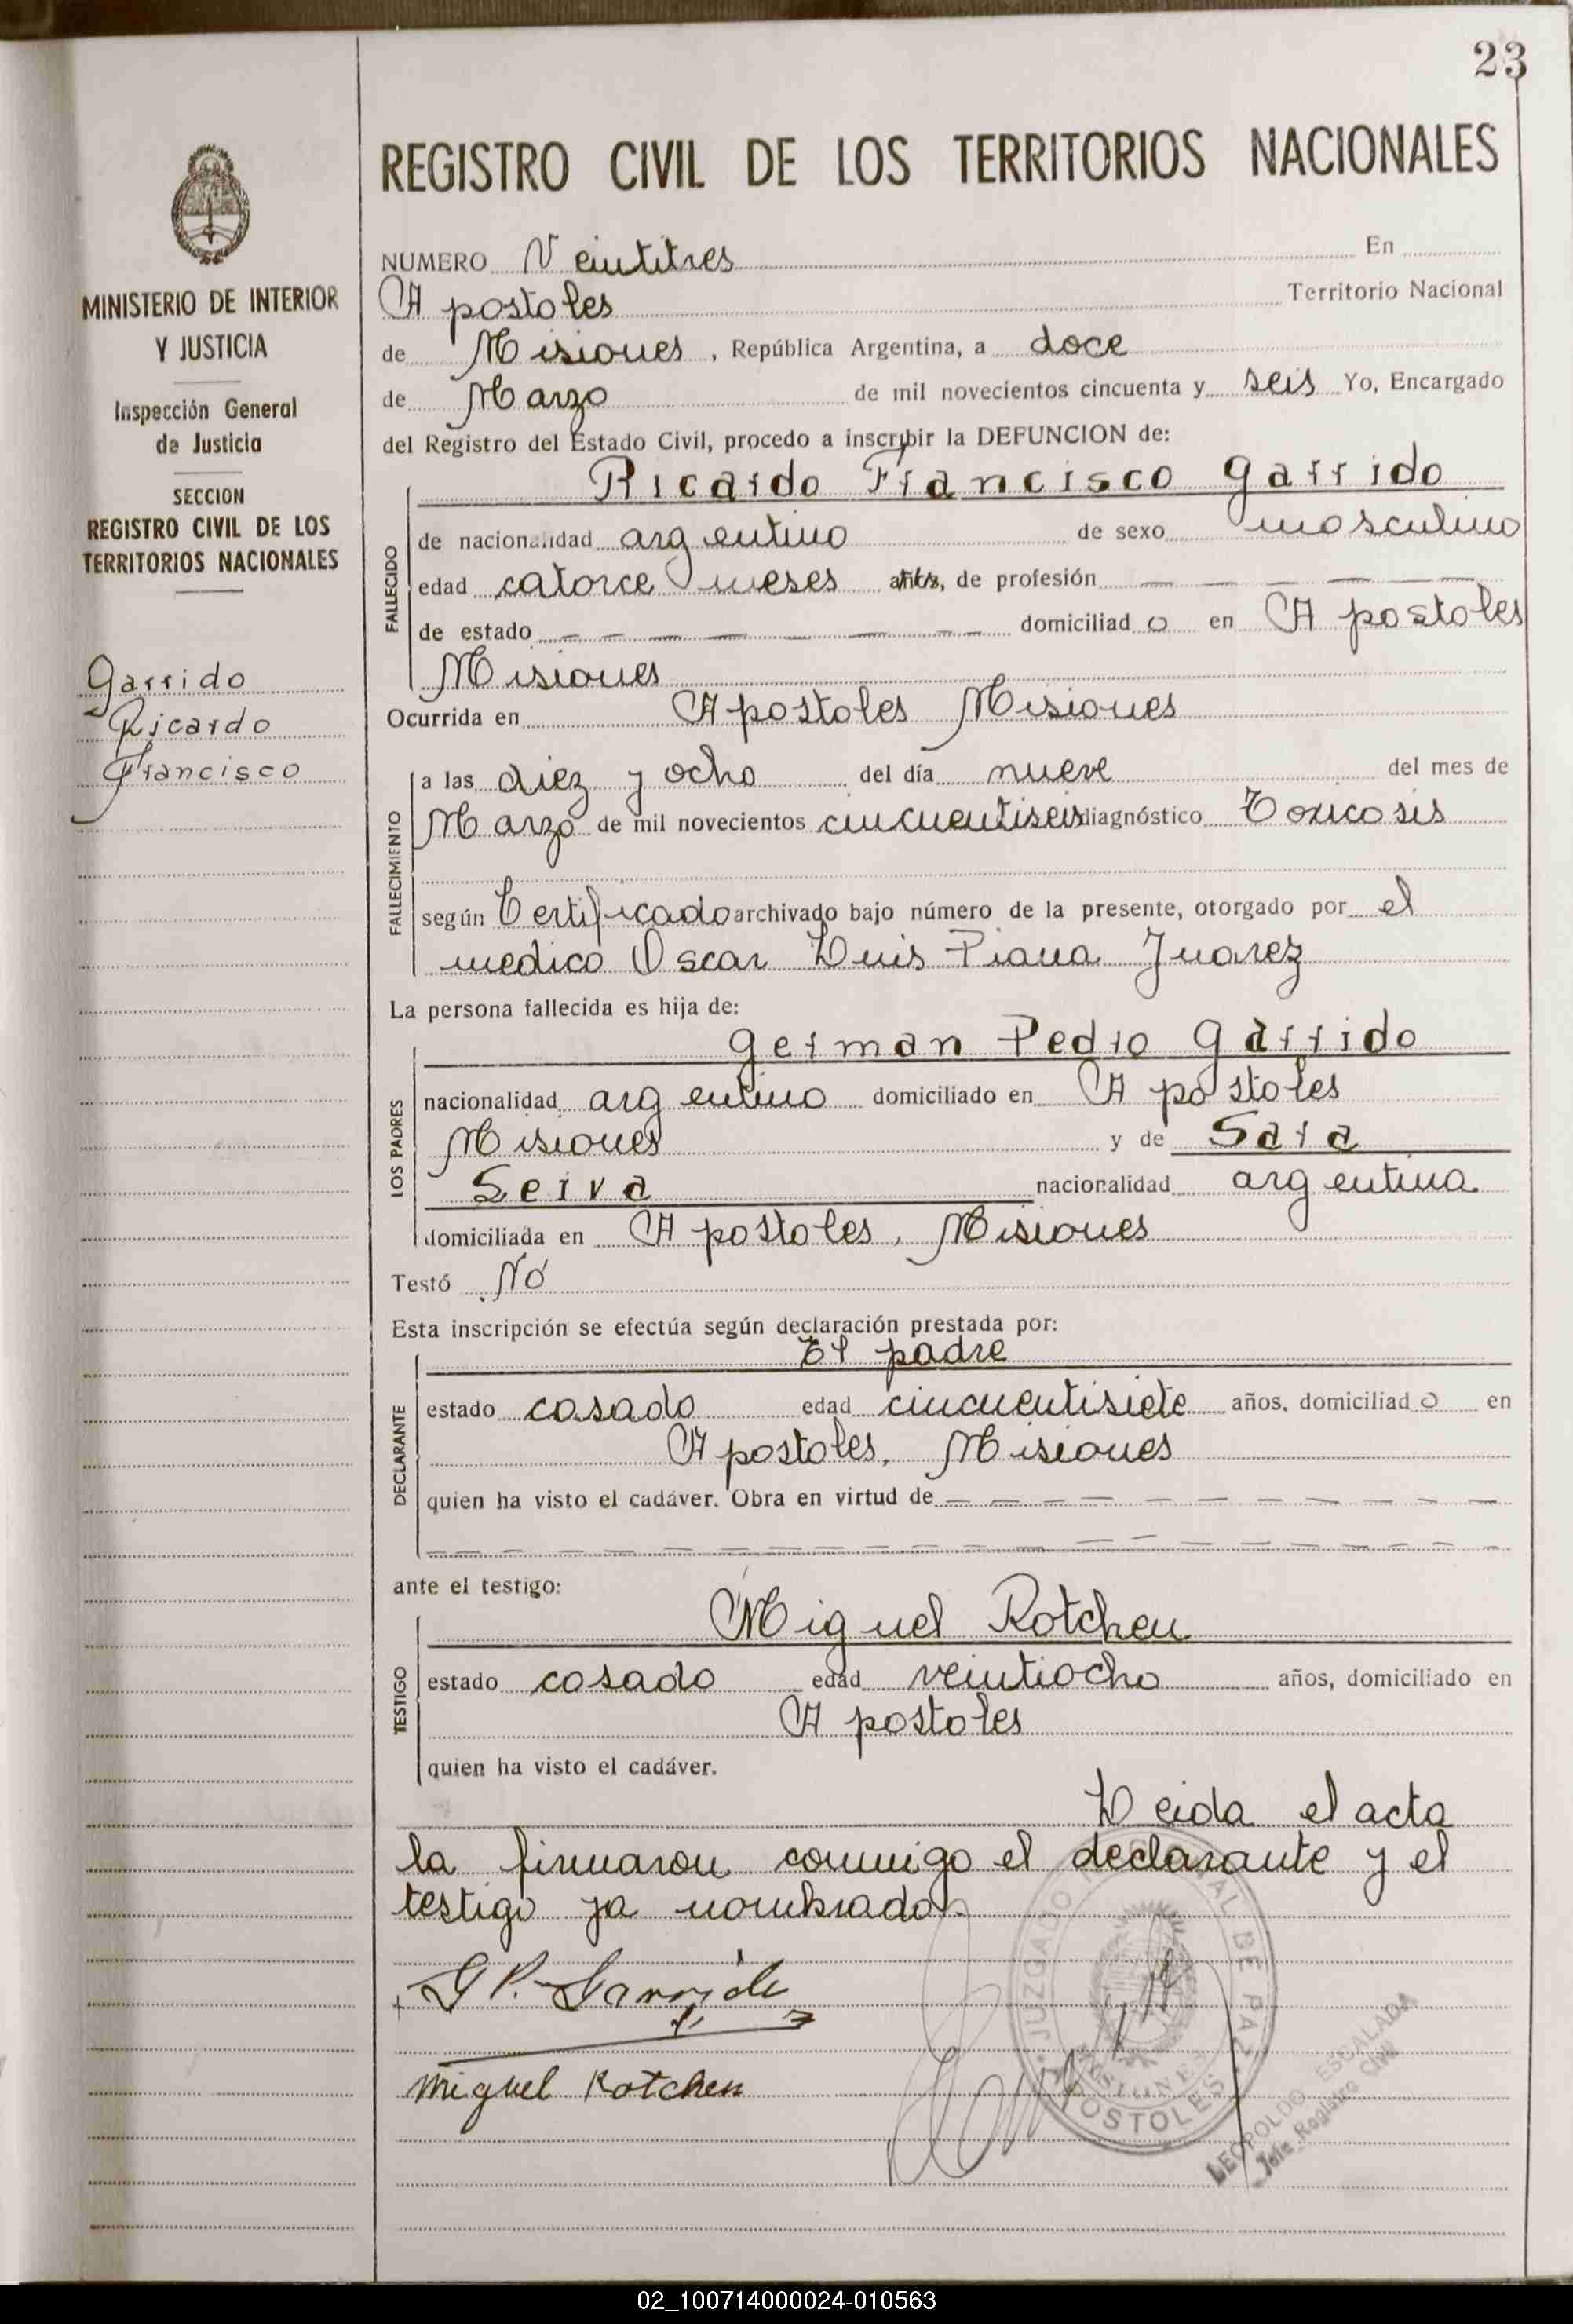 23
REGISTRO CIVIL DE LOS TERRITORIOS NACIONALES
MINISTERIO DE INTERIOR
Y JUSTICIA
Inspección General
de Justicia
SECCION
REGISTRO CIVIL DE LOS
TERRITORIOS NACIONALES
Garrido
Ricardo
Francisco
NUMERO Veintitres En
Apostoles Territorio Nacional
de Misiones, República Argentina, a doce
de Marzo de mil novecientos cincuenta y seis Yo, Encargado
del Registro del Estado Civil, procedo a inscribir la DEFUNCION de:
Ricardo Francisco Garrido
FALLECIDO
de nacionalidad argentino de sexo masculino
edad catorce meses años, de profesión — — — — —
de estado — — — — — — — domiciliado en Apostoles
Misiones
Ocurrida en Apostoles Misiones
FALLECIMIENTO
a las diez y ocho del día nueve del mes de
Marzo de mil novecientos cincuentiseis diagnóstico Toxicosis
según Certificado archivado bajo número de la presente, otorgado por el
medico Oscar Luis Piana Juarez
La persona fallecida es hija de:
German Pedro Garrido
LOS PADRES
nacionalidad argentino domiciliado en Apostoles
Misiones y de Sara
Seiva nacionalidad argentina
domiciliada en Apostoles, Misiones
Testó No
Esta inscripción se efectúa según declaración prestada por:
El padre
DECLARANTE
estado casado edad cincuentisiete años, domiciliado en
Apostoles, Misiones
quien ha visto el cadáver. Obra en virtud de — — — — — — — —
— — — — — — — — — — — — — — — —
ante el testigo:
Miguel Rotchen
TESTIGO
estado casado edad veintiocho años, domiciliado en
Apostoles
quien ha visto el cadáver.
Leida el acta
la firmaron conmigo el declarante y el
testigo ya nombrado.
G P. Garrido
Miguel Rotchen
JUZGADO DE PAZ
MISIONES
APOSTOLES
LEOPOLDO ESCALADA
Jefe Registro Civil
02_100714000024-010563